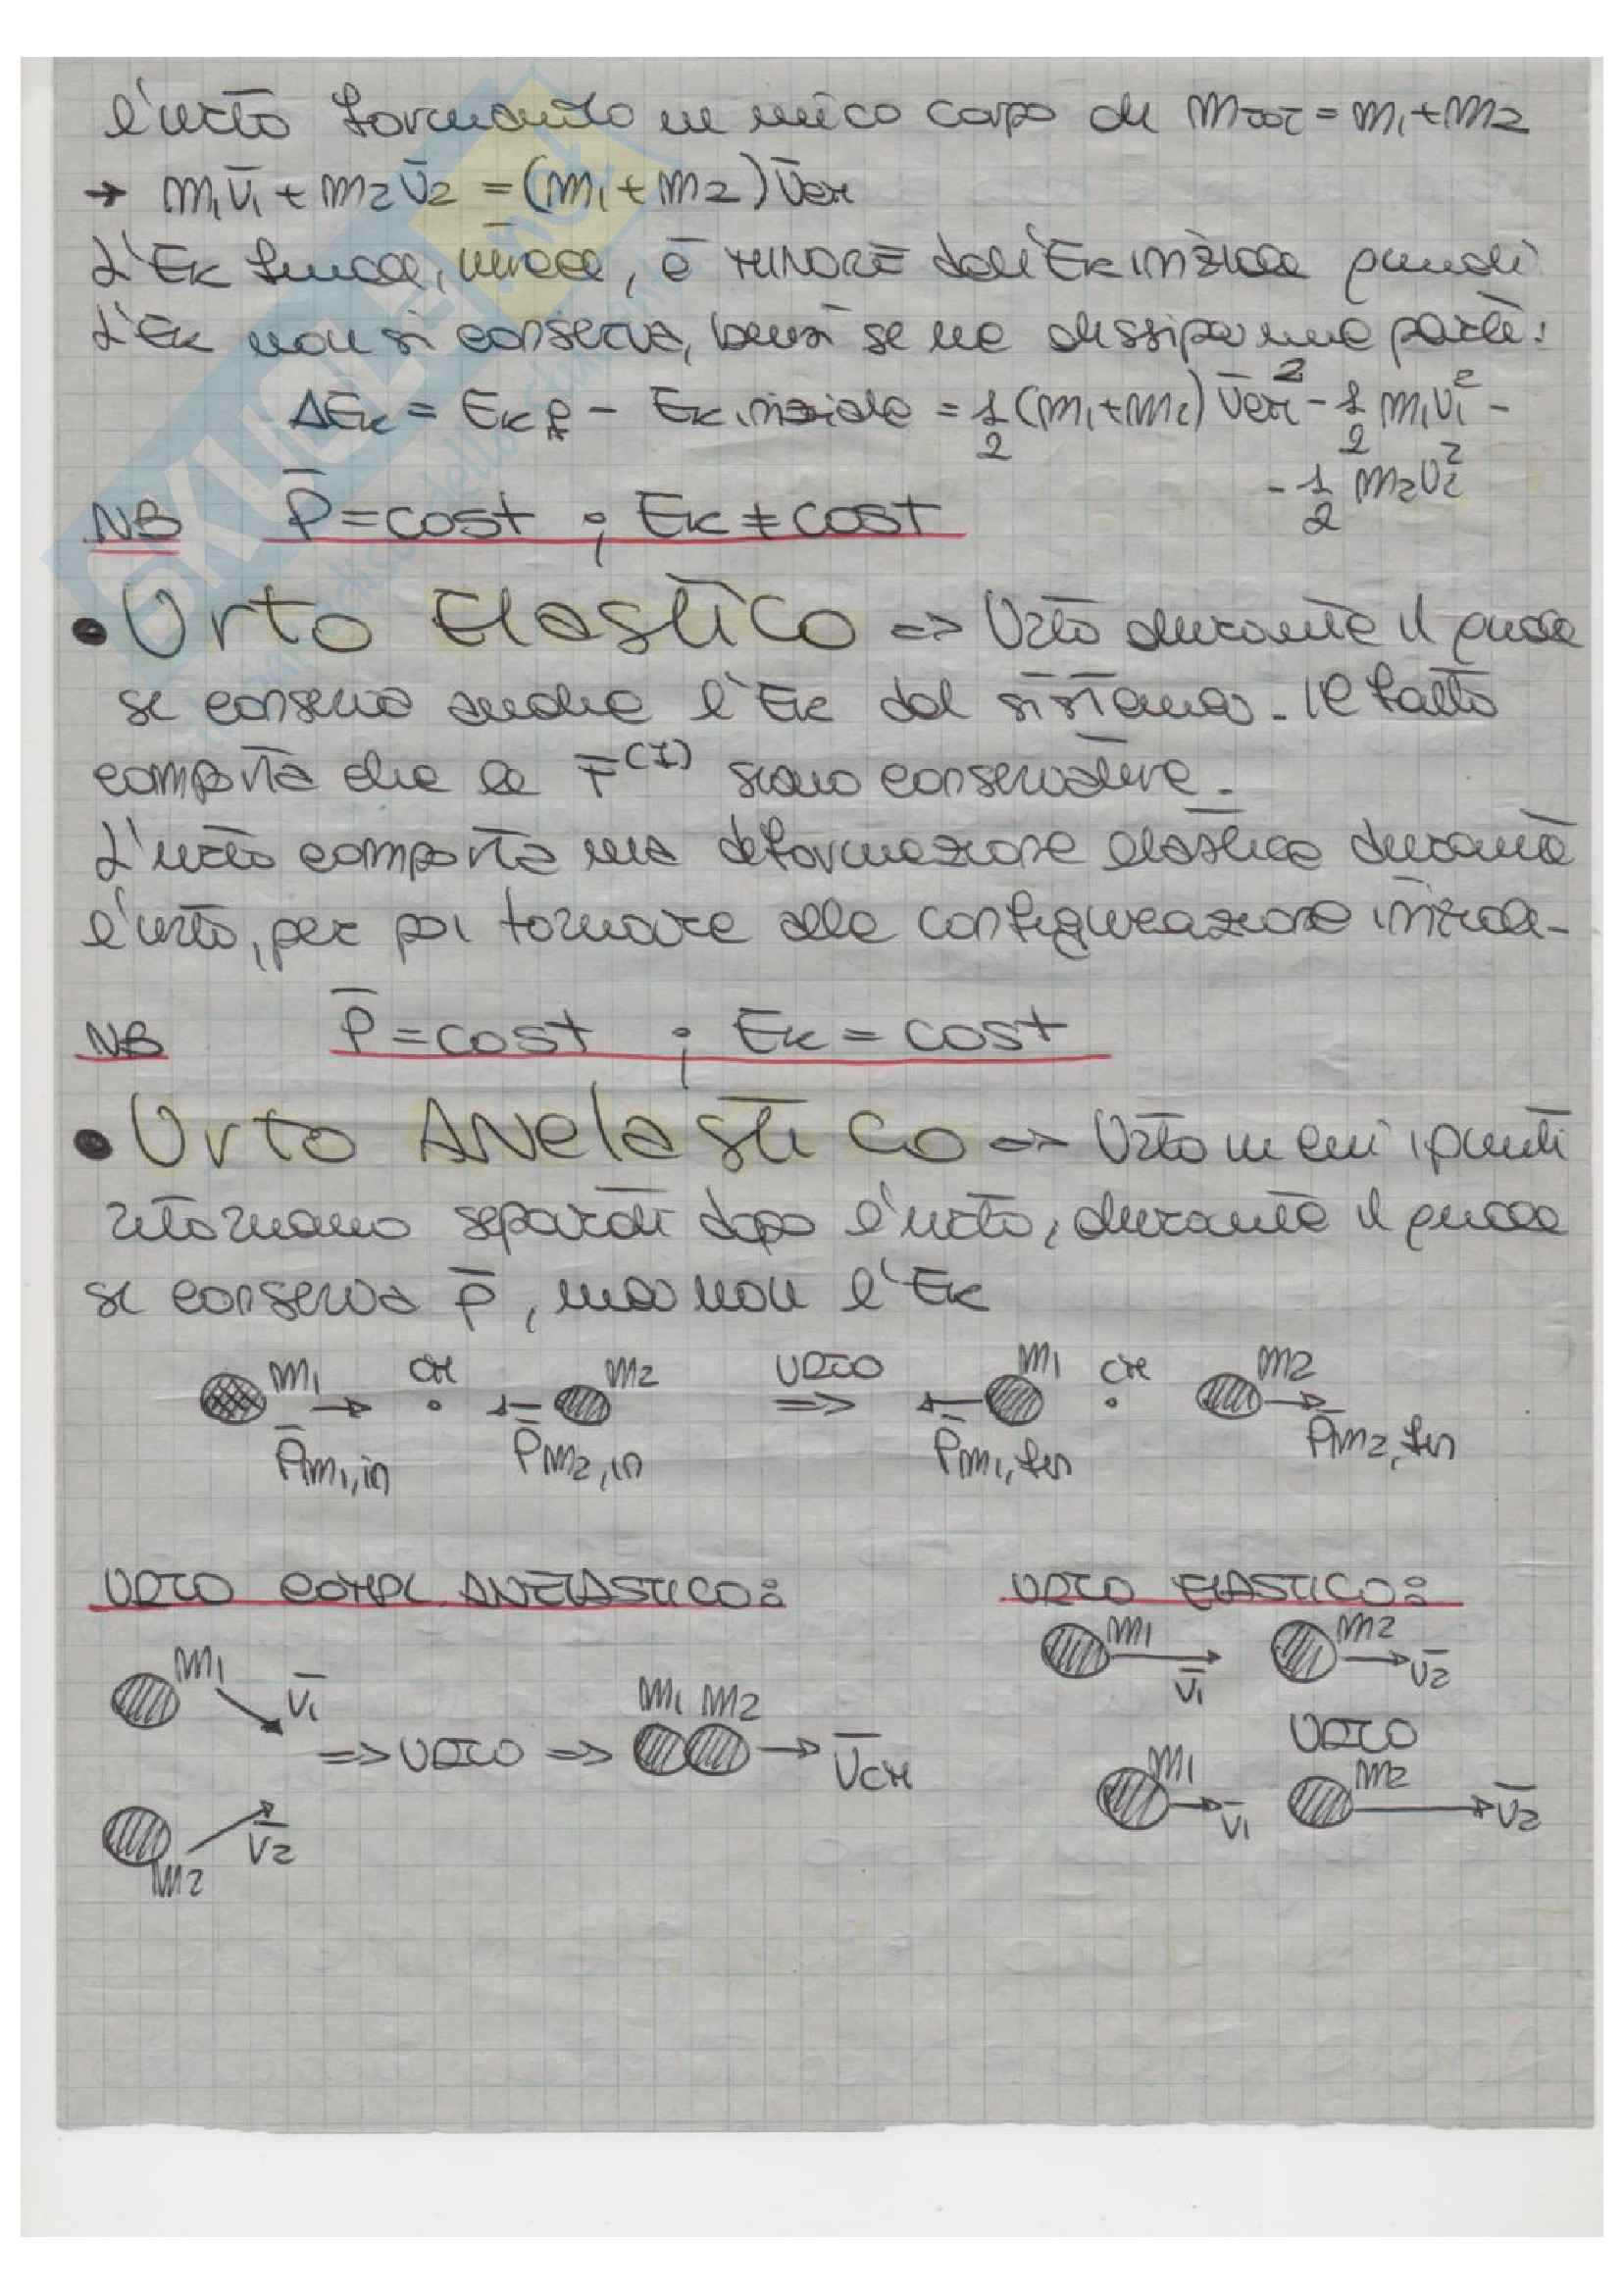 l'urto formando un unico corpo di mTOT = m1+m2
→ m1v̄1 + m2v̄2 = (m1+m2) v̄CM
L'EK finale, invece, è MINORE dell'EK iniziale quindi
L'EK non si conserva, bensì se ne dissipa una parte:
ΔEK = EK,f - EK,iniziale = 1/2 (m1+m2) v̄CM² - 1/2 m1v1² -
- 1/2 m2v2²
NB P̄ = cost ; EK ≠ cost
• Urto Elastico => Urto durante il quale
si conserva anche l'EK del sistema. Il fatto
comporta che le F̄(I) siano conservative.
L'urto comporta una deformazione elastica durante
l'urto, per poi tornare alla configurazione iniziale.
NB P̄ = cost ; EK = cost
• Urto ANelastico => Urto in cui i punti
ritornano separati dopo l'urto, durante il quale
si conserva P̄, ma non l'EK
m1 CM m2 URTO => m1 CM m2
P̄m1,in P̄m2,in P̄m1,fin P̄m2,fin
URTO COMPL. ANELASTICO: URTO ELASTICO:
m1 v̄1 m2 v̄2
m1 v̄1 => URTO => m1 m2 v̄CM
URTO
m2 v̄2 m1 v̄1 m2 v̄2
SKUOLA.net